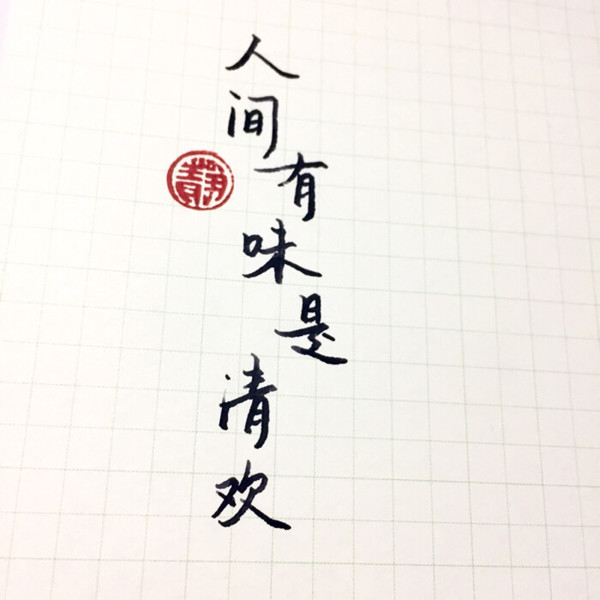 人间有味是清欢
靜